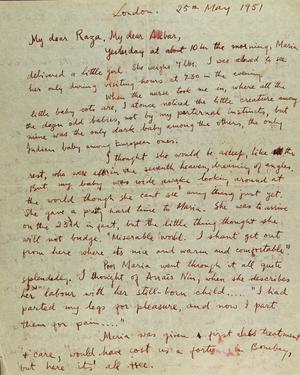 London. 25th May 1951
My dear Raza, My dear Akbar,
Yesterday at about 10 in the morning, Maria
delivered a little girl. She weighs 7 lbs. I was allowed to see
her only during visiting hours at 7.30 in the evening.
When the nurse took me in, where all the
little baby cots are, I at once noticed the little creature among
the dozen odd babies, not by my paternal instincts, but
mine was the only dark baby among the others, the only
Indian baby among European ones.
I thought she would be asleep, like all the
rest, who were all in the seventh heaven, dreaming of angles,
But my baby was wide awake looking around at
the world though she cant see any thing just yet.
She gave a pretty hard time to Maria. She was to arrive
on the 23rd in fact, but the little thing thought she
will not budge. "Miserable world. I shant get out
from here where its nice and warm and comfortable"
Maria went through it all quite
splendedly. I thought of Anais Nin, when she describes
her labour with her still-born child.... "I had
parted my legs for pleasure, and now I part
them for pain...."
Maria was given a first class treatment
& care, would have cost us a fortune in Bombay,
but here its all free.